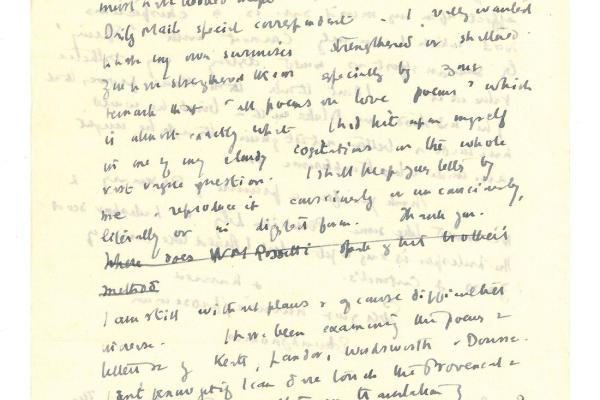 Daily Mail special correspondent - I really wanted
to have my own surmises strengthened or shattered.
You have strengthened them especially by your
remark that "all poems are love poems" which
is almost exactly what I had hit upon myself
in one of my cloudy cogitations on the whole
vast vague question. I shall keep your letter by
me & reproduce it consciously or unconsciously,
literally or in digest form. Thank you.
Where does W M Rossetti speak of his brother's
method
I am still without plans & of course difficulties
increase. I have been examining the poems &
letters &c of Keats, Landor, Wordsworth & Donne.
I don't know yet if I can dare touch the Provencal &
translation